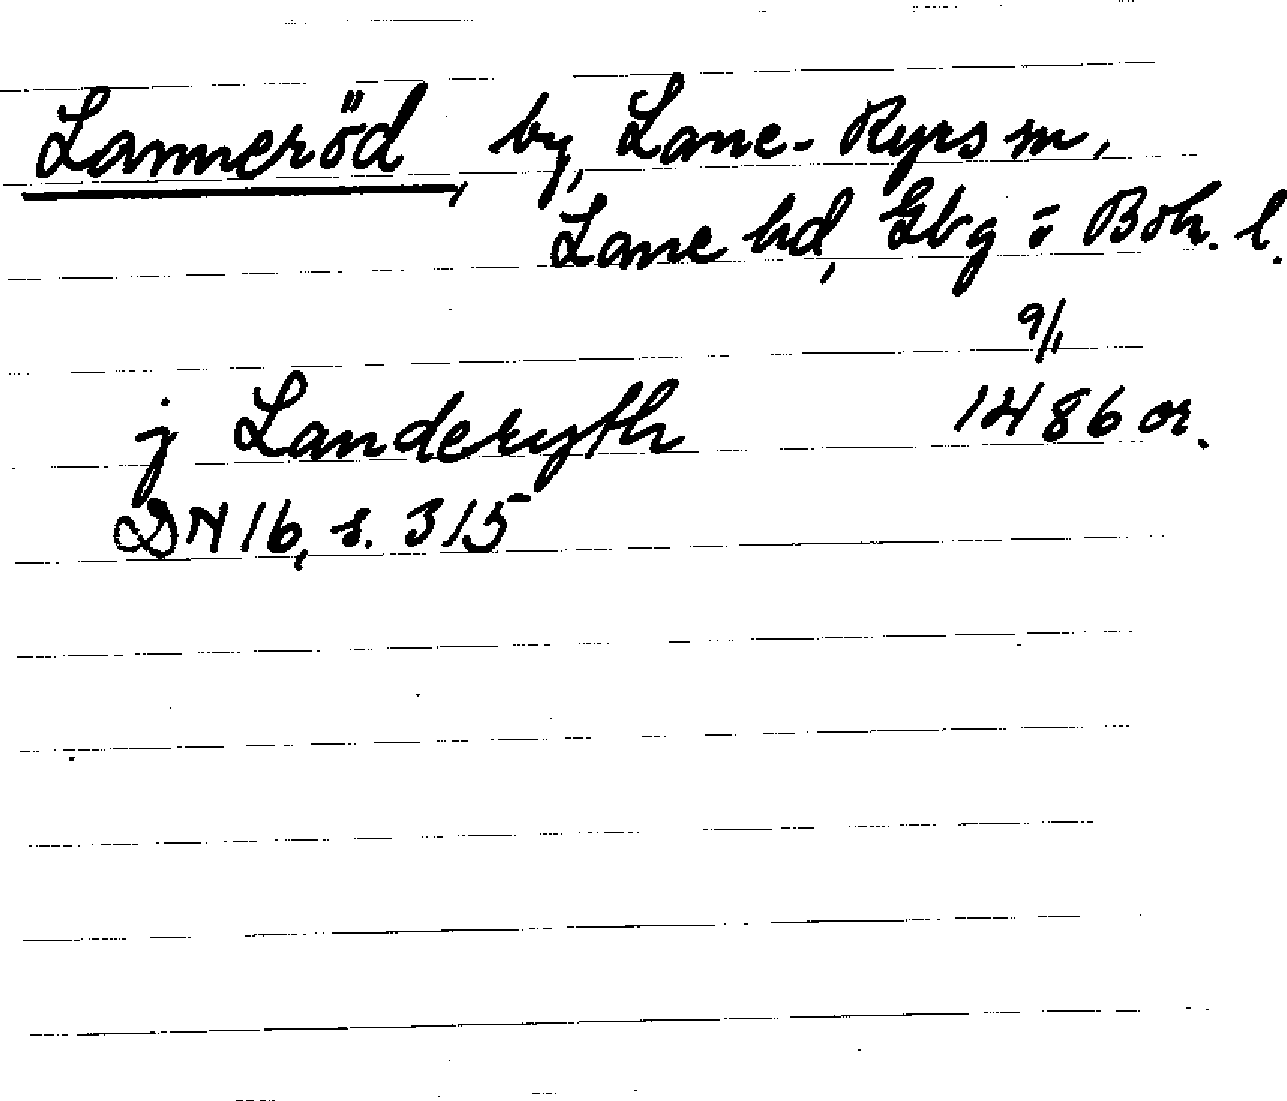 Lanneröd, by, Lane-Ryrs sn,
Lane hd, Gbg o Boh. l.
9/1
j Landeryth 1486 or.
DN 16, s. 315